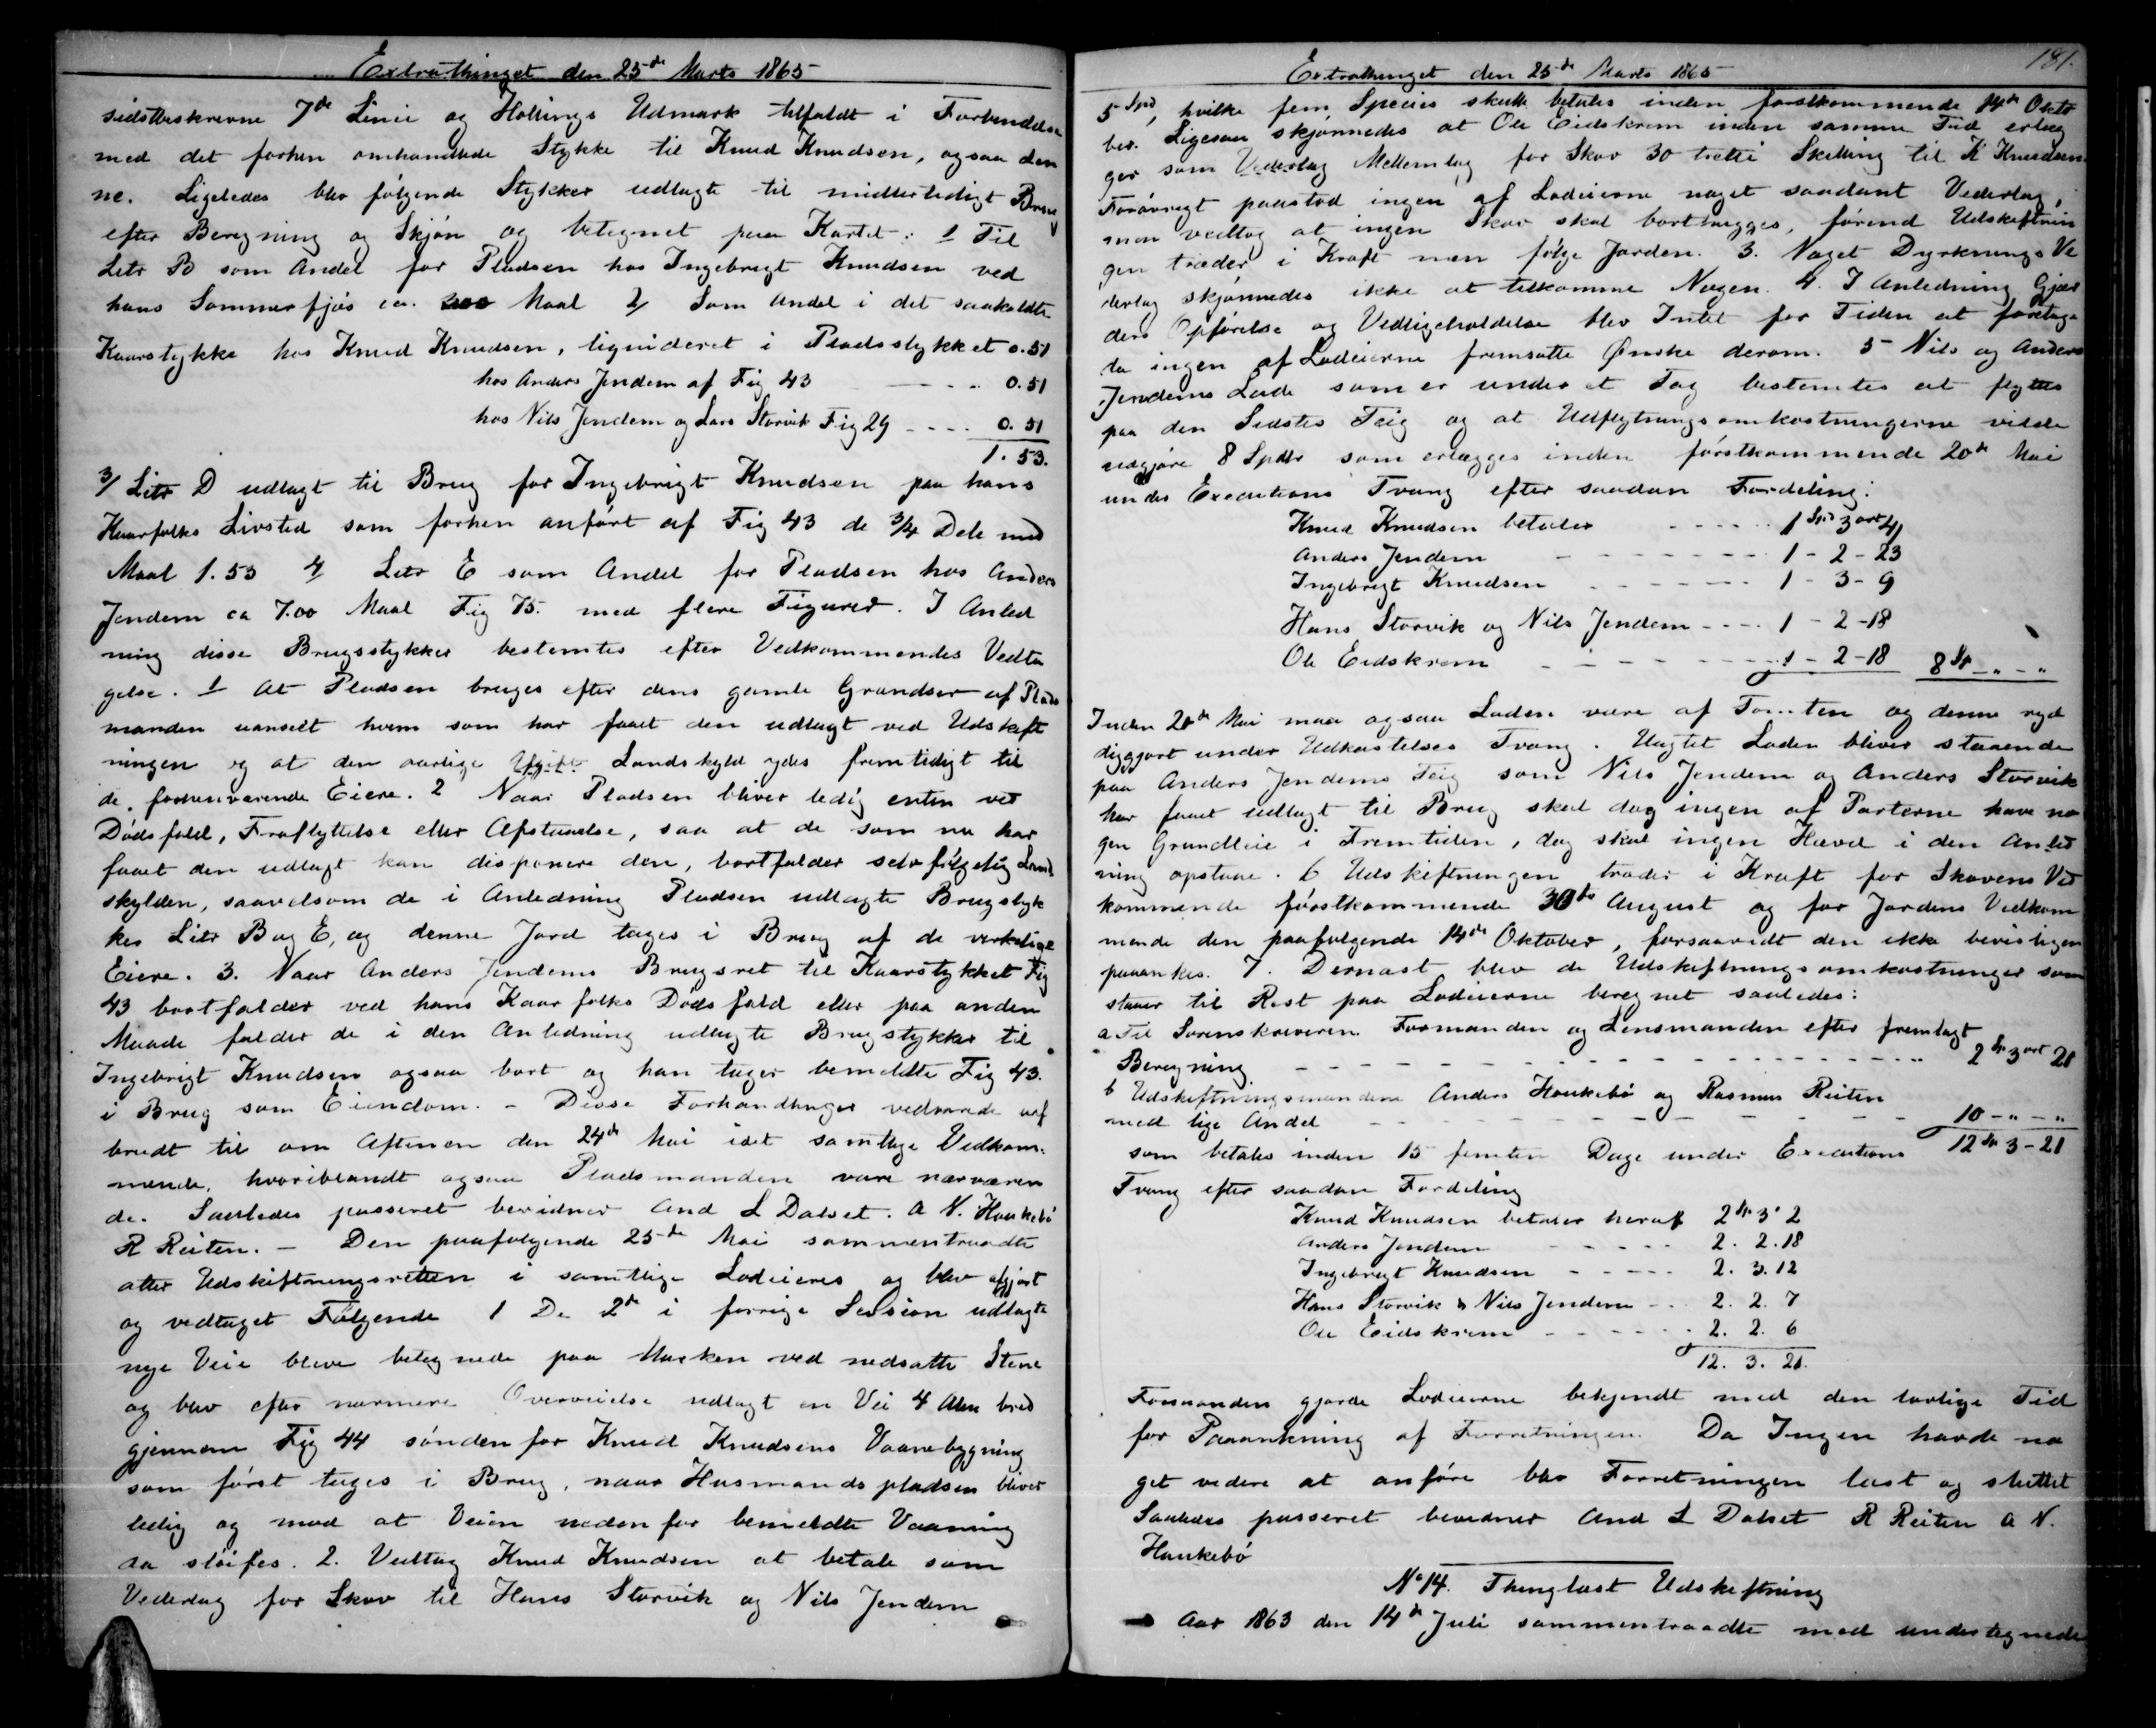 Extrathinget den 25de Marts 1865
sidstbeskrevne 7de Linie og Hollings Udmark tilfaldt i Forbindelse
med det forhen omhandlede Stykke til Knud Knudsen, ogsaa den
ne. Ligeledes blev følgende Stykker udlagte til midlertidigt Brug
efter Beregning og Skjøn og betegnet paa Kartet: 1 Til
Litr B som Andel for Pladsen hos Ingebrigt Knudsen ved
hans Sommerfjøs ca. Maal 2/ Som Andel i det saakaldte
Kaarstykke hos Knud Knudsen, ligvideret i Pladsstykket 0.51
hos Anders Jendem af Fig 43 - - - - 0.51
hos Nils Jendem og Lars Storvik Fig 29 - - - - 0.51
1.53.
3/ Litr D udlagt til Brug for Ingebrigt Knudsen paa hans
Kaarfolks Livstid som forhen anført af Fig 43 de 3/4 Dele med
Maal 1.53 4/ Litr E som Andel for Pladsen hos Anders
Jendem ca 7.00 Maal Fig 75. med flere Figurer. I Anled
ning disse Brugsstykker bestemtes efter Vedkommendes Vedta
gelse. 1 At Pladsen bruges efter dens gamle Grændser af Plads
manden uanseet hvem som har faaet den udlagt ved Udskift
ningen og at den aarlige Afgift Landskyld ydes fremtidigt til
de forhenværende Eiere. 2 Naar Pladsen bliver ledig enten ved
Dødsfald, Fraflyttelse eller Afstaaelse, saa at de som nu har
faaet den udlagt kan disponere den, bortfalder selvfølgelig Land
skylden, saavelsom de i Anledning Pladsen udlagte Brugsstyk
ker Litr B og E, og denne Jord tages i Brug af de virkelige
Eiere. 3. Naar Anders Jendems Brugsret til Kaarstykket Fig
43 bortfalder ved hans Kaarfolks Dødsfald eller paa anden
Maade falder de i den Anledning udlagte Brugstykker til
Ingebrigt Knudsen ogsaa bort og han tager bemeldte Fig 43.
i Brug som Eiendom. - Disse Forhandlinger vedvarede uaf
brudt til om Aftenen den 24de Mai idet samtlige Vedkom-
mende, hvoriblandt ogsaa Pladsmanden vare nærværen
de. Saaledes passeret bevidner And L Dalset. A N. Haukebø
R Reiten. - Den paafølgende 25de Mai sammentraadte
atter Udskiftningsretten i samtlige Lodeieres og blev afgjort
og vedtaget Følgende 1 De 2de i forrige Session udlagte
nye Veie bleve betegnede paa Marken ved nedsatte Stene
og blev efter nærmere Overveielse udlagt en Vei 4 Alen bred
gjennem Fig 44 sønden for Knud Knudsens Vaanebygning
som først tages i Brug, naar Husmandspladsen bliver
ledig og mod at Veien neden for bemeldte Vaaning
da sløifes. 2. Vedtog Knud Knudsen at betale som
Vederlag for Skov til Hans Storvik og Nils Jendem
Extrathinget den 25de Marts 1865
181.
5 Spd, hvilke fem Species skulle betales inden førstkommende 14de Okto
ber. Ligesaa skjønnedes at Ole Eidskrem inden samme Tid erlæg
ger som Vederlag Mellemlag for Skov 30 tretti Skilling til K Knudsen
Forøvrigt paastod ingen af Lodeierne noget saadant Vederlag,
men vedtog at ingen Skov skal borthugges, førend Udskiftnin
gen træder i Kraft men følge Jorden. 3. Noget Dyrknings Ve
derlag skjønnedes ikke at tilkomme Nogen. 4. I Anledning Gjær
ders Opførelse og Vedligeholdelse blev Intet for Tiden at foretage
da ingen af Lodeierne fremsatte Ønske derom. 5 Nils og Anders
Jendems Lade som er under et Tag bestemtes at flyttes
paa den Sidstes Teig og at Udflytningsomkostningerne vilde
udgjøre 8 Spdlr som erlægges inden førstkommende 20de Mai
under Executions Tvang efter saadan Fordeling:
Knud Knudsen betaler - - - - - 1 Spd 3 ort 4
Anders Jendem - - - - - - - 1 - 2 - 23
Ingebrigt Knudsen - - - - - - 1 - 3 - 9
Hans Storvik og Nils Jendem - - - - 1 - 2 - 18
Ole Eidskrem - - - - - - - 1 - 2 - 18 8 Sp - " - "
Inden 20de Mai maa ogsaa Laden være af Tomten og denne ryd
diggjort under Udkastelses Tvang. Uagtet Laden bliver staaende
paa Anders Jendems Teig som Nils Jendem og Anders Storvik
har faaet udlagt til Brug skal dog ingen af Parterne have no
gen Grundleie i Fremtiden, dog skal ingen Hævd i den Anled
ning opstaae. 6 Udskiftningen træder i Kraft for Skovens Ved
kommende førstkommende 30te August og for Jordens Vedkom
mende den paafølgende 14de Oktober, forsaavidt den ikke bevisligen
paaankes. 7. Dernæst blev de Udskiftningsomkostninger som
staaer til Rest paa Lodeierne beregnet saaledes:
a Til Sorenskriveren Formanden og Lensmanden efter fremlagt
Beregning - - - - - - - - - - - - - 2 Sp 3 ort 21
b Udskiftningsmændene Anders Haukebø og Rasmus Reiten
med lige Andel - - - - - - - - - - 10 - " - "
som betales inden 15 femten Dage under Executions 12 Sp 3 - 21
Tvang efter saadan Fordeling
Knud Knudsen betaler heraf 2 Sp 3 2
Anders Jendem - - - - - 2. 2. 18
Ingebrigt Knudsen - - - - - 2. 3. 12
Hans Storvik & Nils Jendem - - 2. 2. 7
Ole Eidskrem - - - - - - 2. 2. 6
12. 3. 21.
Formanden gjorde Lodeierne bekjendt med den lovlige Tid
for Paaankning af Forretningen. Da Ingen havde no
get videre at anføre blev Forretningen læst og sluttet
Saaledes passeret bevidner And L Dalset R Reiten A N.
Haukebø
No 14. Thinglæst Udskiftning
Aar 1863 den 14de Juli sammentraadte med undertegnede